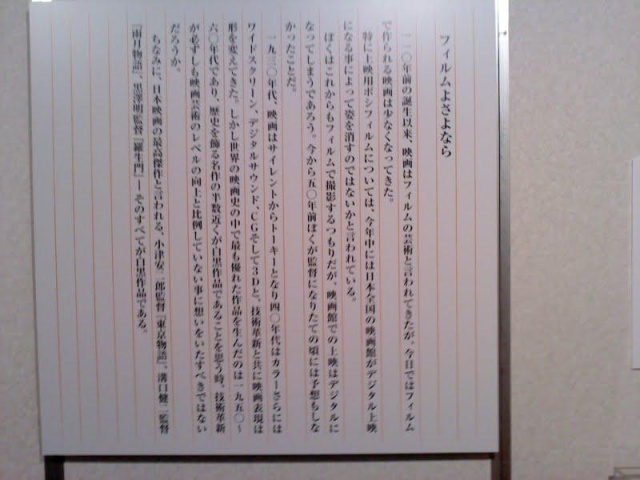 フィルムよさよなら
一二〇年前の誕生以来、映画はフィルムの芸術と言われてきたが、今日ではフィルム
で作られる映画は少なくなってきた。
特に上映用ポジフィルムについては、今年中には日本全国の映画館がデジタル上映
になる事によって姿を消すのではないかと言われている。
ぼくはこれからもフィルムで撮影するつもりだが、映画館での上映はデジタルに
なってしまうであろう。今から五〇年前ぼくが監督になりたての頃には予想もしな
かったことだ。
一九三〇年代、映画はサイレントからトーキーとなり四〇年代はカラーさらには
ワイドスクリーン、デジタルサウンド、CGそして3Dと、技術革新と共に映画表現は
形を変えてきた。しかし世界の映画史の中で最も優れた作品を生んだのは一九五〇～
六〇年代であり、歴史を飾る名作の半数近くが白黒作品であることを思う時、技術革新
が必ずしも映画芸術のレベルの向上と比例していない事に想いをいたすべきではない
だろうか。
ちなみに、日本映画の最高傑作と言われる、小津安二郎監督「東京物語」、溝口健二監督
「雨月物語」、黒澤明監督「羅生門」―そのすべてが白黒作品である。